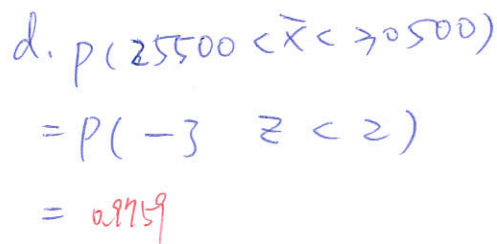 d. P(25500 < x̄ < 30500)
= P(-3 z < 2)
= 0.9759